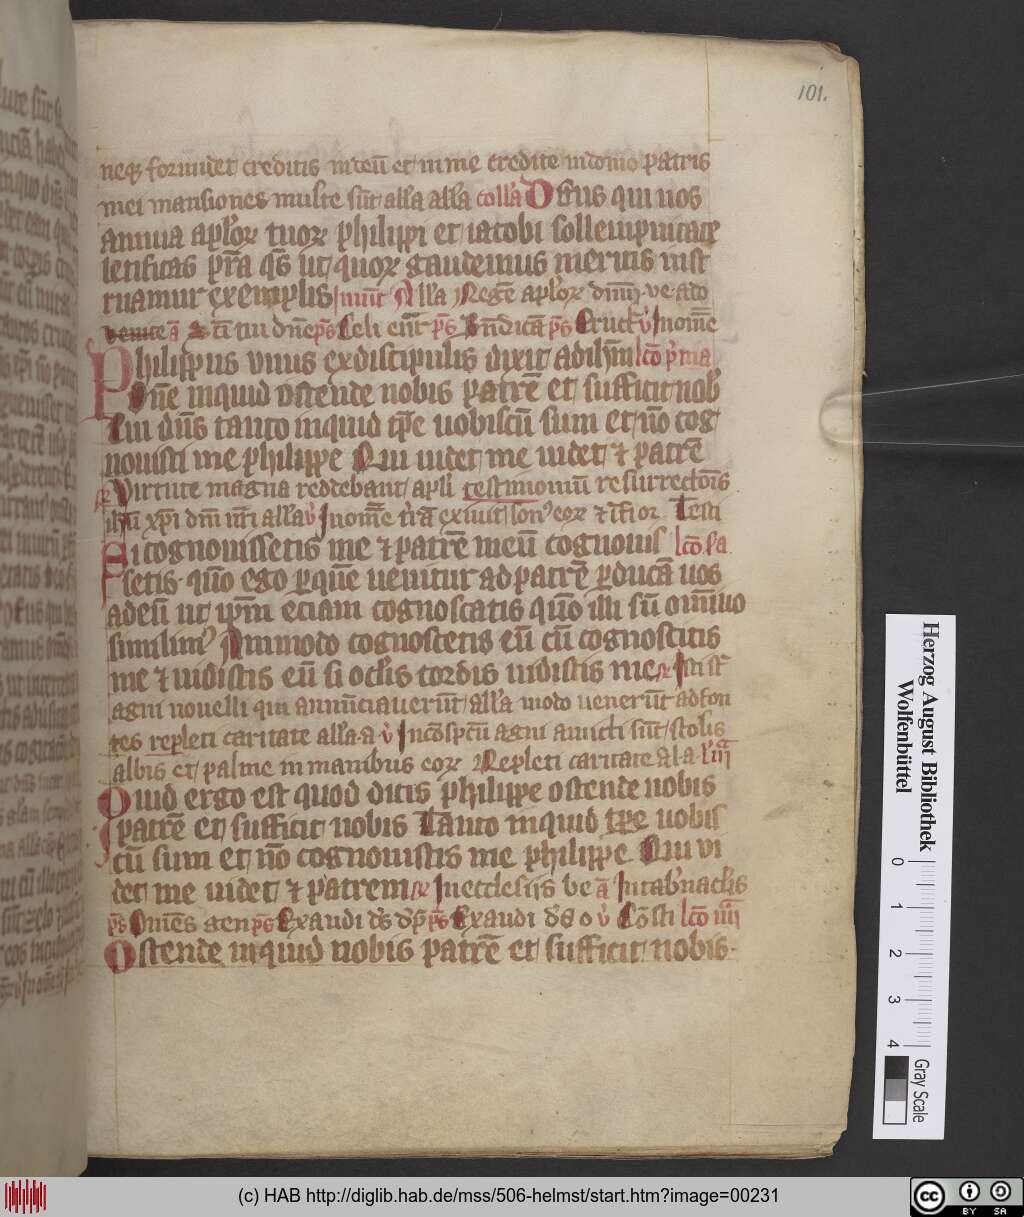 101.
neq formidet creditis in deū et in me credite in domo patris
mei mansiones multe sūt all'a all'a coll'a Deus qui nos
annua apl'oꝝ tuoꝝ philippi et iacobi sollempnitate
letificas pr̄a qs̄ ut quoꝝ gaudemus meritis inst
ruamur exemplis Inuit̄ All'a Regē apl'oꝝ dnm̄ ve ado
venite a̅ Sc̄i tui dn̄e ps̄ Celi enar̄ ps̄ Bn̄dicā ps̄ Eruct v̄ In om̄e
Philippus vnus ex discipulis dixit ad ih̄m lc̄o p'ma
Dn̄e inquid ostende nobis patrē et sufficit nob
Cui dn̄s tanto inquid tp̄e uobiscū sum et nō cog
nouisti me philippe Qui uidet me uidet ⁊ patrē
ꝶ Virtute magna reddebant apl'i testimoniū resurrectōis
ih̄u xp̄i dm̄ nr̄i all'a v̄ In om̄e tr̄ā exiuit son' eoꝝ ⁊ ī fi or Testi
Si cognouissetis me ⁊ patrē meū cognouis lc̄o s'a
setis quō ego ꝑ quē uenitur ad patrē ꝑducā uos
ad eū ut ip̄m eciam cognoscatis quō illi sū omīno
simlim' Ammodo cognoscetis eū cū cognoscitis
me ⁊ uidistis eū si oclis cordis uidistis me ꝶ Isti st̄
agni nouelli qui annūciauerūt all'a modo uenerūt ad fon
tes repleti caritate all'a a v̄ In cōspc̄u agni amicti sūt stolis
albis et palme in manibus eoꝝ Repleti caritate a la l' iii
Quid ergo est quod dicis philippe ostende nobis
patrē et sufficit nobis Tanto inquid tp̄e uobis
cū sum et nō cognouistis me philippe Qui vi
det me uidet ⁊ patrem ꝶ In ecclesiis be a̅ In tab'naclis
ps̄ Om̄es gen ps̄ Exaudi ds̄ dp̄ ps̄ Exaudi ds̄ o v̄ Cōsti lc̄o iiii
Ostende inquid nobis patrē et sufficit nobis
Herzog August Bibliothek
Wolfenbüttel
0 1 2 3 4
Gray Scale
(c) HAB http://diglib.hab.de/mss/506-helmst/start.htm?image=00231
cc BY SA